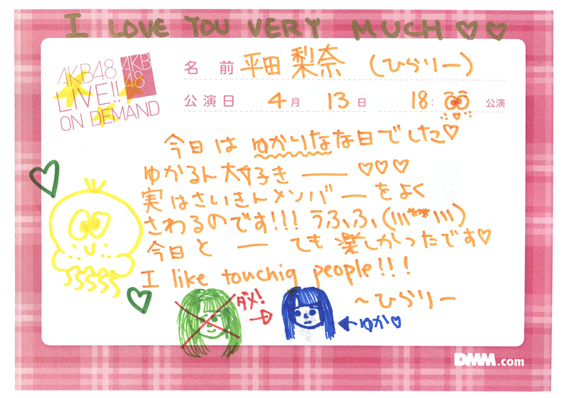 I LOVE YOU VERY MUCH♡♡
AKB48 AKB48
LIVE!!
ON DEMAND
名 前 平田 梨奈 (ひらりー)
公演日 4月 13日 18: 公演
今日は ゆかりなな日でした♡
ゆかるん大好き ー ♡♡♡
実はさいきんメンバーをよく
さわるのです!!! うふふ
今日とーーても楽しかったです♡
I like touchig people!!!
ダメ!
〜ひらりー
←ゆか♡
DMM.com